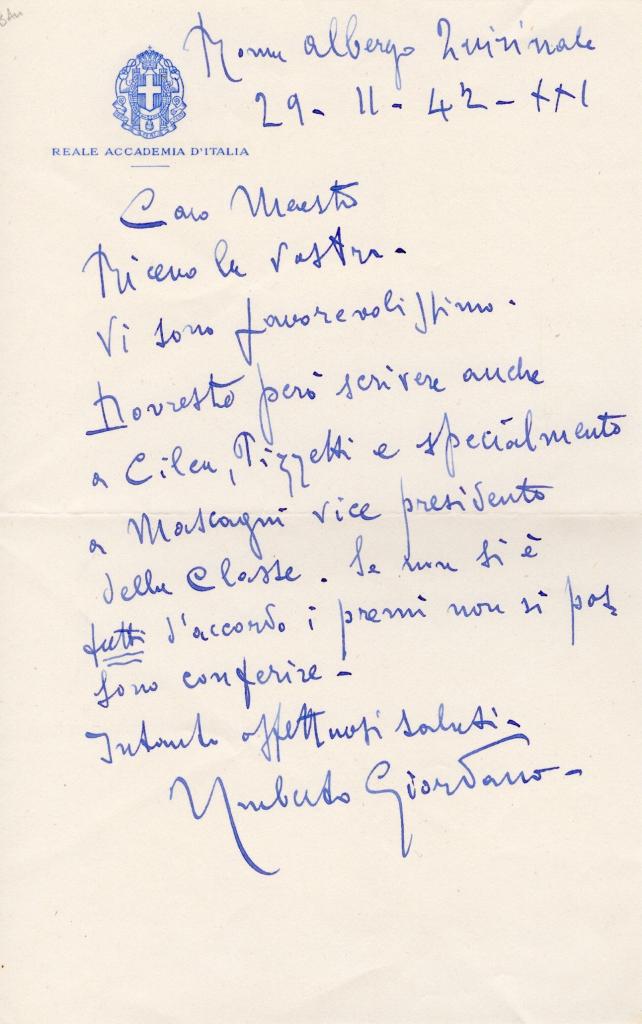 Roma albergo Quirinale
29 - 11 - 42 - XXI
REALE ACCADEMIA D'ITALIA
Caro Maestro
Ricevo la vostra -
Vi sono favorevolissimo.
Dovreste però scrivere anche
a Cilea, Pizzetti e specialmente
a Mascagni vice presidente
della Classe. Se non si è
tutti d'accordo i premi non si pos
sono conferire -
Intanto affettuosi saluti -
Umberto Giordano -